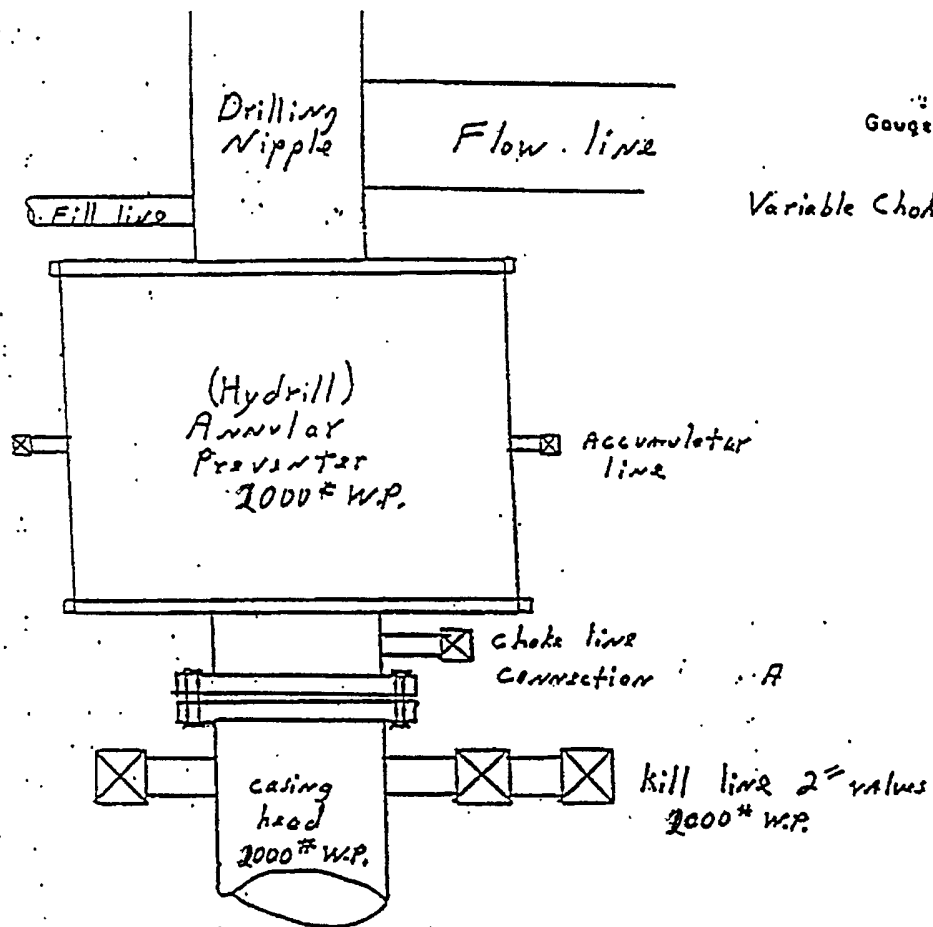 Drilling
Nipple
Flow. line
Gauge
Fill line
Variable Chok
(Hydrill)
Annular
Preventer
2000# W.P.
Accumulator
line
choke line
connection
A
casing
head
2000# W.P.
kill line 2" valves
2000# W.P.